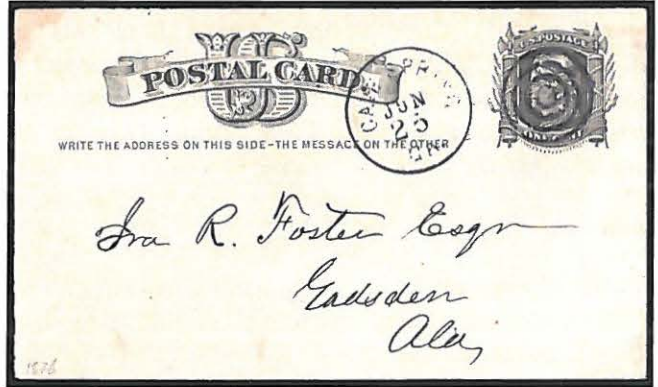 US
POSTAL CARD
U.S. POSTAGE
ONE CENT
WRITE THE ADDRESS ON THIS SIDE-THE MESSAGE ON THE OTHER
Ira R. Foster Esqr
Gadsden
Ala,
1876